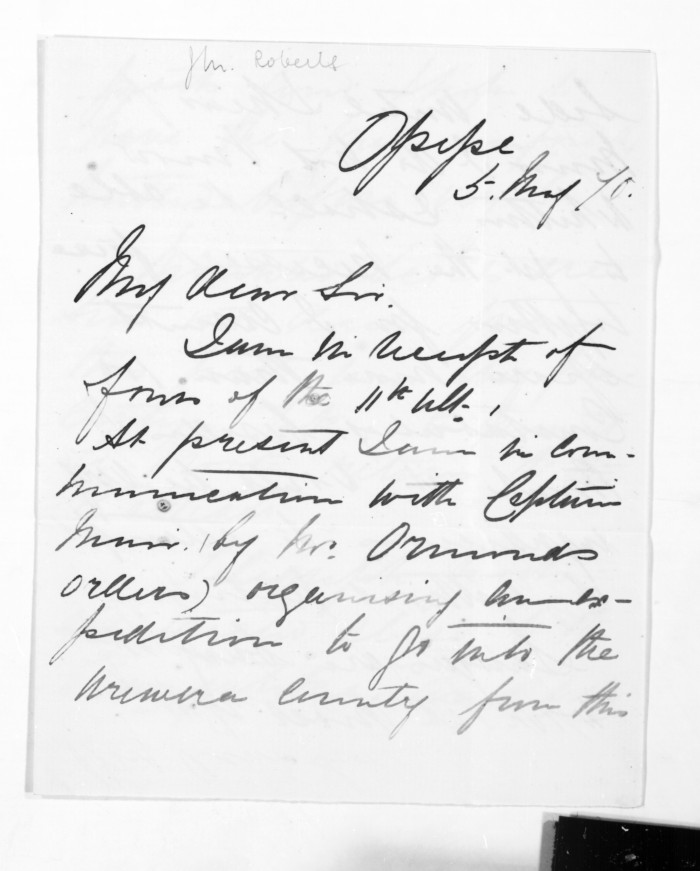 Jn. Roberts
Opepe
5. May 70.
My dear Sir.
I am in receipt of
yours of the 11th Ult.,
At present I am in com-
munication with Captain
(by Mr. Ormonds
orders) organising an ex-
pedition to go into the
Urewera County from this